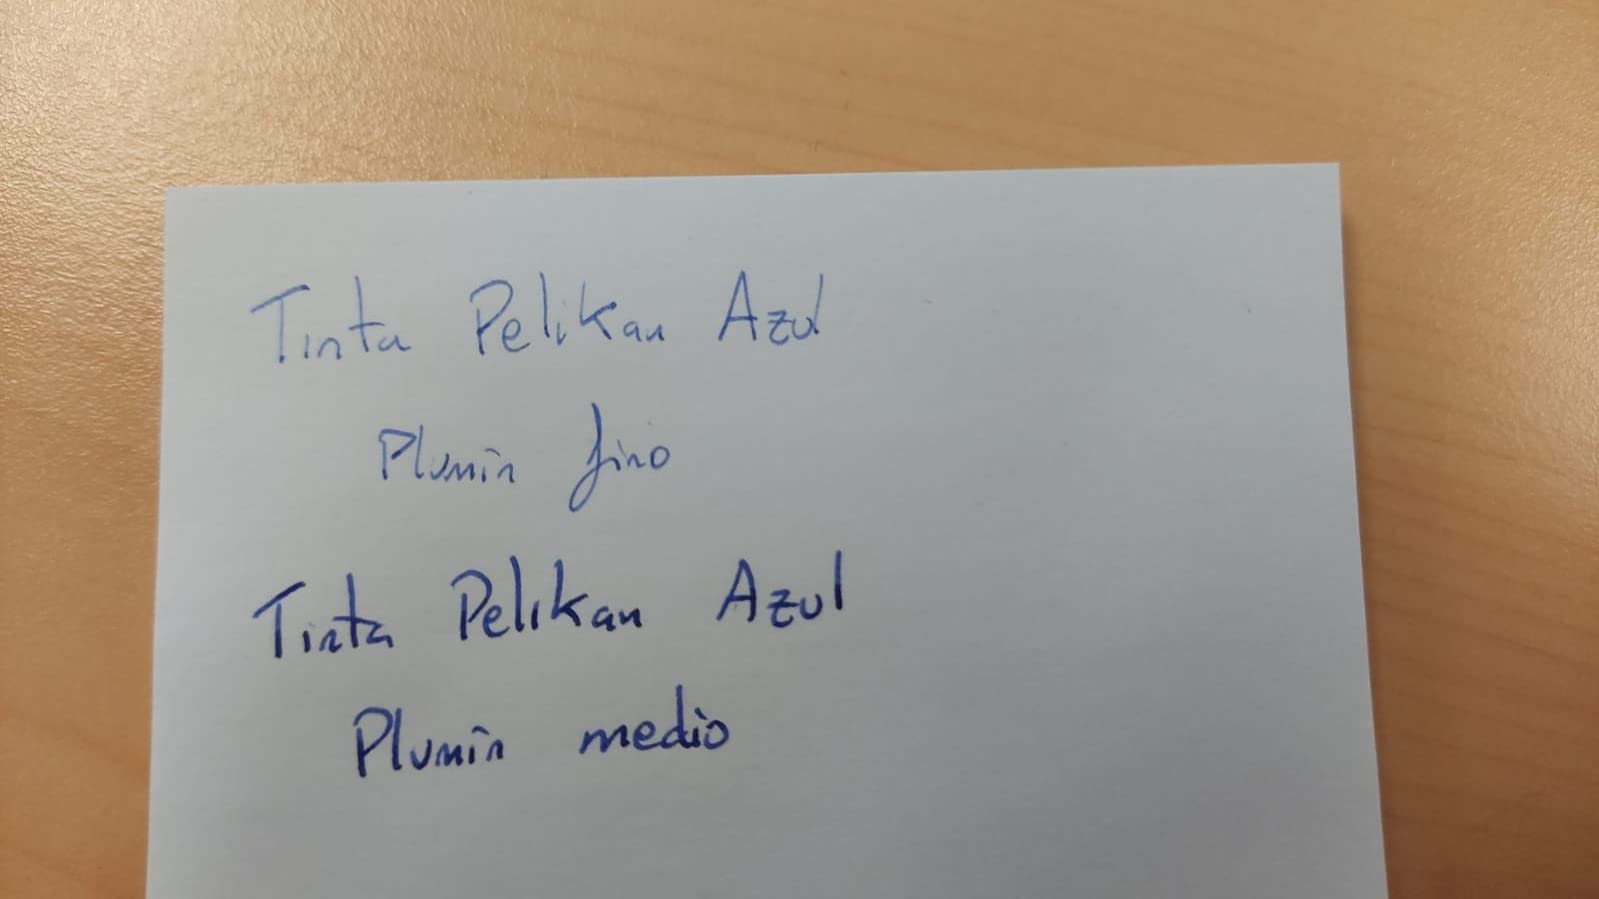 Tinta Pelikan Azul
Plumín fino
Tinta Pelikan Azul
Plumín medio